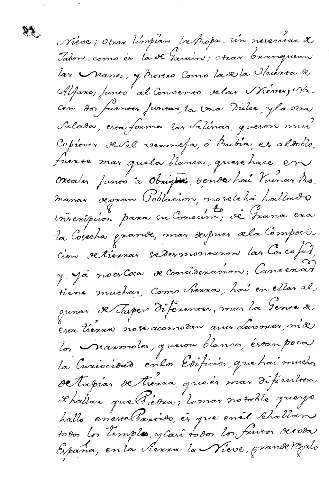 Nieve; otras limpian la Ropa, sin necesidad de
Jabon, como es la de Garain; otras branquean
las Manos, y Rostro como la de la Huerta de
Alfaro, junto al Convento de las Nieves; Na-
cen dos fuentes juntas, la una Dulce, y la otra
Salada, esta forma las Salinas, que son mui
Copiosas de Sal vermeja, ó Rubia, es al doblo
fuerte mas que la blanca, que se hace en
Oreales junto à donde hai Ruinas Ro-
manas de gran Poblacion, no se le ha hallado
inscripcion para su Conocim.to; de Grana era
la Cosecha grande, mas despues de la Composi-
cion de tierras se desmontaron las
y yá no es Cosa de Consideracion; Canteras
tiene muchas, como Sierra, hai en ellas al-
gunas de Jaspes Diferentes, mas la Gente de
esta tierra no se acomodan a sus Labores, ni de
los Marmoles, que son blancos, es tan poca
la Curiosidad en los Edificios, que hai muchos
de tapias de tierra, que es mas dificultosa
de hallar que Piedra; lo mas notable que yo
hallo en este Partido, es que en él se hallan
todos los temples, y Casi todos los frutos de toda
España, en la Sierra la Nieve,